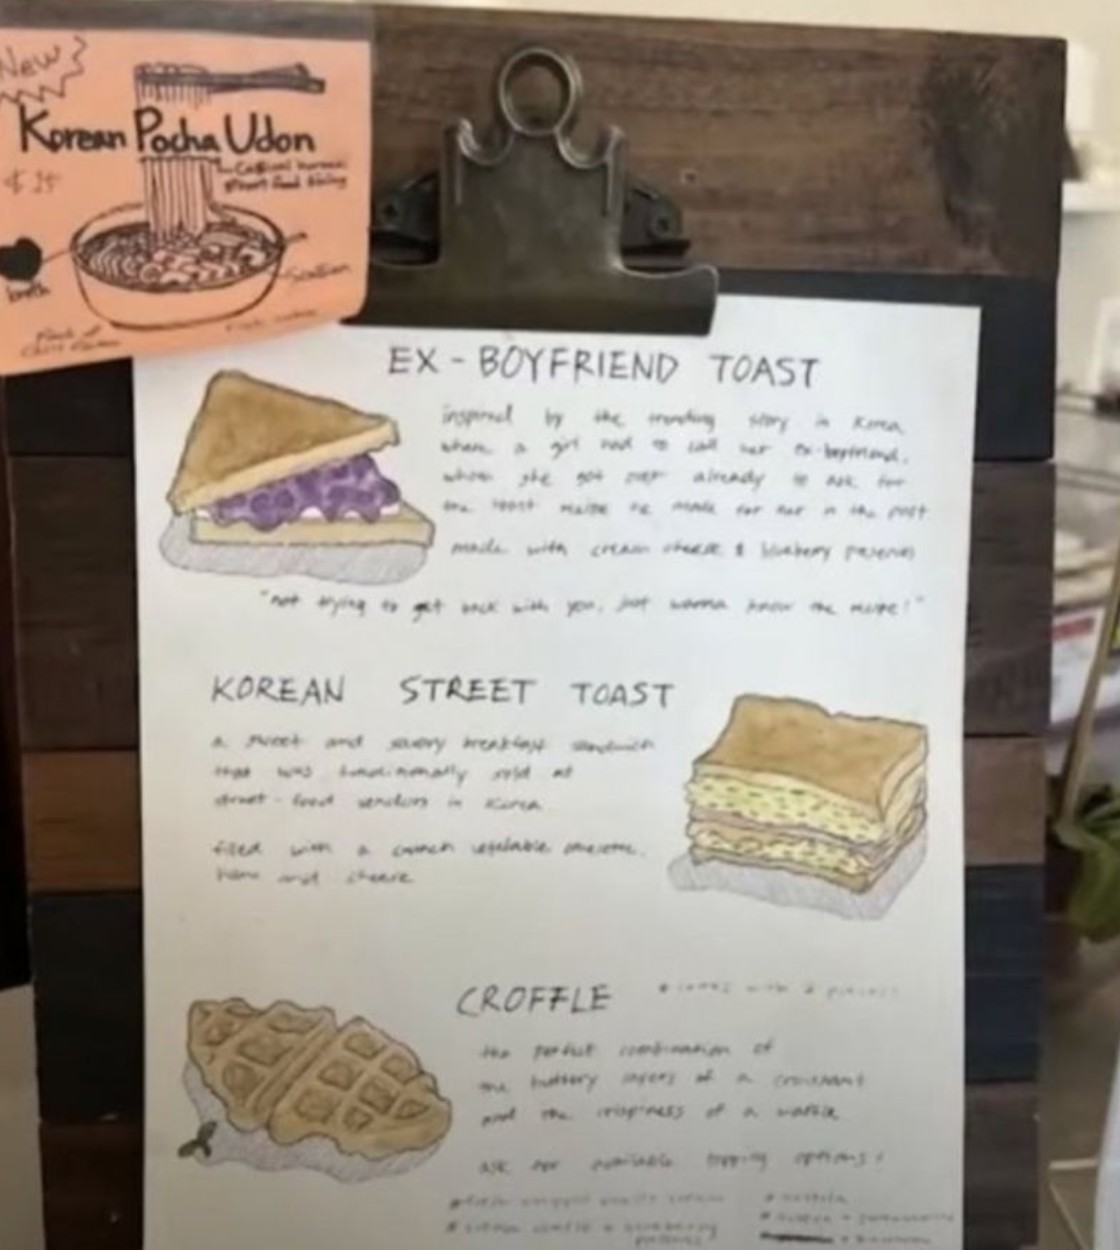 New
Korean Pocha Udon
Casual Korean
street food dining
Scallion
broth
EX-BOYFRIEND TOAST
inspired by the trending story in Korea
where a girl had to call her ex-boyfriend,
whom she got over already to ask for
the toast recipe he made for her in the past
made with cream cheese & blueberry preserves
"not trying to get back with you, just wanna know the recipe!"
KOREAN STREET TOAST
a sweet and savory breakfast sandwich
that was traditionally sold at
street-food vendors in Korea
filled with a vegetable omelette,
ham and cheese
CROFFLE
*comes with 2 pieces!
the perfect combination of
the buttery layers of a croissant
and the crispiness of a waffle
ask for available topping options!
* nutella